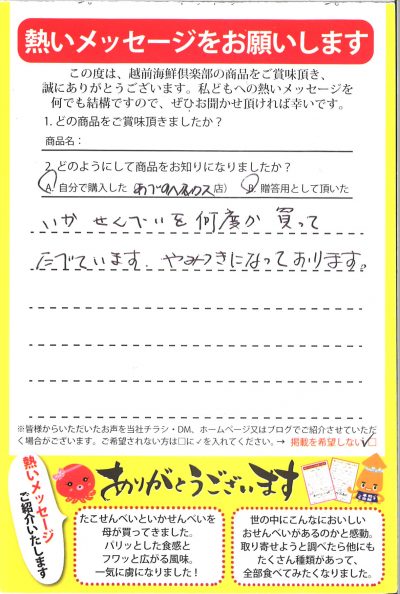 熱いメッセージをお願いします
この度は、越前海鮮倶楽部の商品をご賞味頂き、
誠にありがとうございます。私どもへの熱いメッセージを
何でも結構ですので、ぜひお聞かせ頂ければ幸いです。
1. どの商品をご賞味頂きましたか？
商品名：
2. どのようにして商品をお知りになりましたか？
A. 自分で購入した 店） B. 贈答用として頂いた
いか せんべいを何度か 買って
たべています. やみつきになっております。
※皆様からいただいたお声を当社チラシ・DM、ホームページ又はブログでご紹介させていただ
く場合がございます。ご希望されない方は□に✓を入れてください。→ 掲載を希望しない☑
熱いメッセージ
ご紹介いたします
ありがとうございます
たこせんべいといかせんべいを
母が買ってきました。
パリッとした食感と
フワッと広がる風味。
一気に虜になりました！
世の中にこんなにおいしい
おせんべいがあるのかと感動。
取り寄せようと調べたら他にも
たくさん種類があって、
全部食べてみたくなりました。